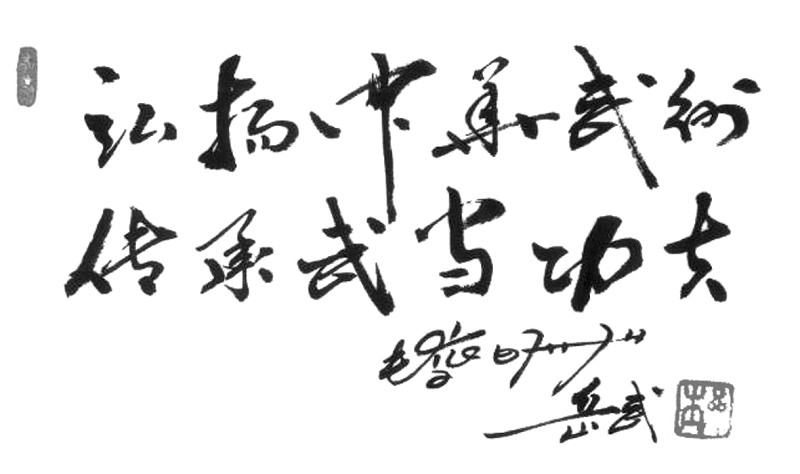 弘扬中华武术
传承武当功夫
岳武